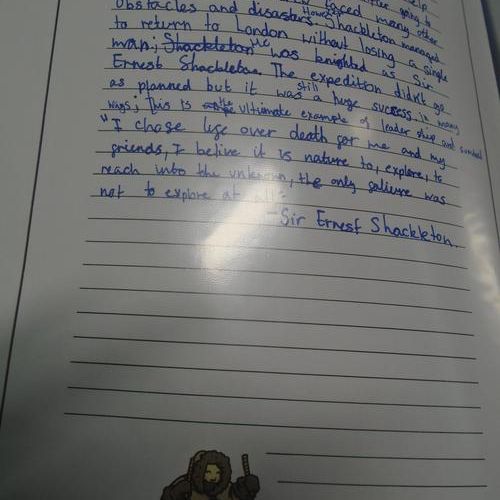 help
faced many other
obstacles and disasters. However Shackleton managed
to return to London without losing a single
man; Shackleton He was knighted as Sir
Ernest Shackleton. The expedition didn't go
as planned but it was still a huge success in many
ways; This is the ultimate example of leader ship and survival
"I chose life over death for me and my
friends, I belive it is nature to, explore, to
reach into the unknown, the only failure was
not to explore at all"
- Sir Ernest Shackleton.